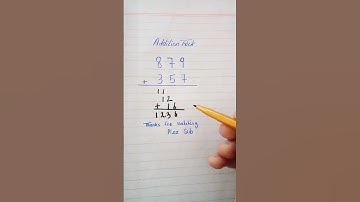 Addition Trick
8 7 9
+ 3 5 7
1 1
1 2
+ 1 6
1 2 3 6
Thanks for watching
Plez Sub